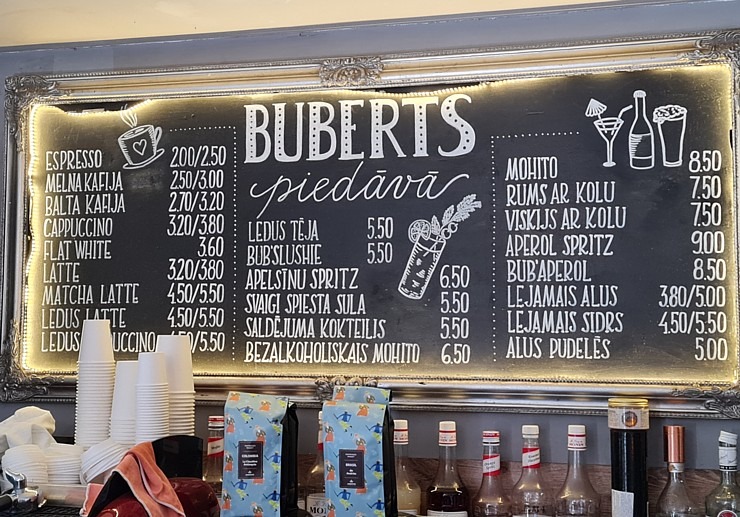 BUBERTS
piedāvā
ESPRESSO 2.00/2.50
MELNA KAFIJA 2.50/3.00
BALTA KAFIJA 2.70/3.20
CAPPUCCINO 3.20/3.80
FLAT WHITE 3.60
LATTE 3.20/3.80
MATCHA LATTE 4.50/5.50
LEDUS LATTE 4.50/5.50
LEDUS 5.50
LEDUS TĒJA 5.50
BUB'SLUSHIE 5.50
APELSĪNU SPRITZ 6.50
SVAIGI SPIESTA SULA 5.50
SALDĒJUMA KOKTEILIS 5.50
BEZALKOHOLISKAIS MOHITO 6.50
MOHITO 8.50
RUMS AR KOLU 7.50
VISKIJS AR KOLU 7.50
APEROL SPRITZ 9.00
BUB'APEROL 8.50
LEJAMAIS ALUS 3.80/5.00
LEJAMAIS SIDRS 4.50/5.50
ALUS PUDELĒS 5.00
COLOMBIA
BRAZIL